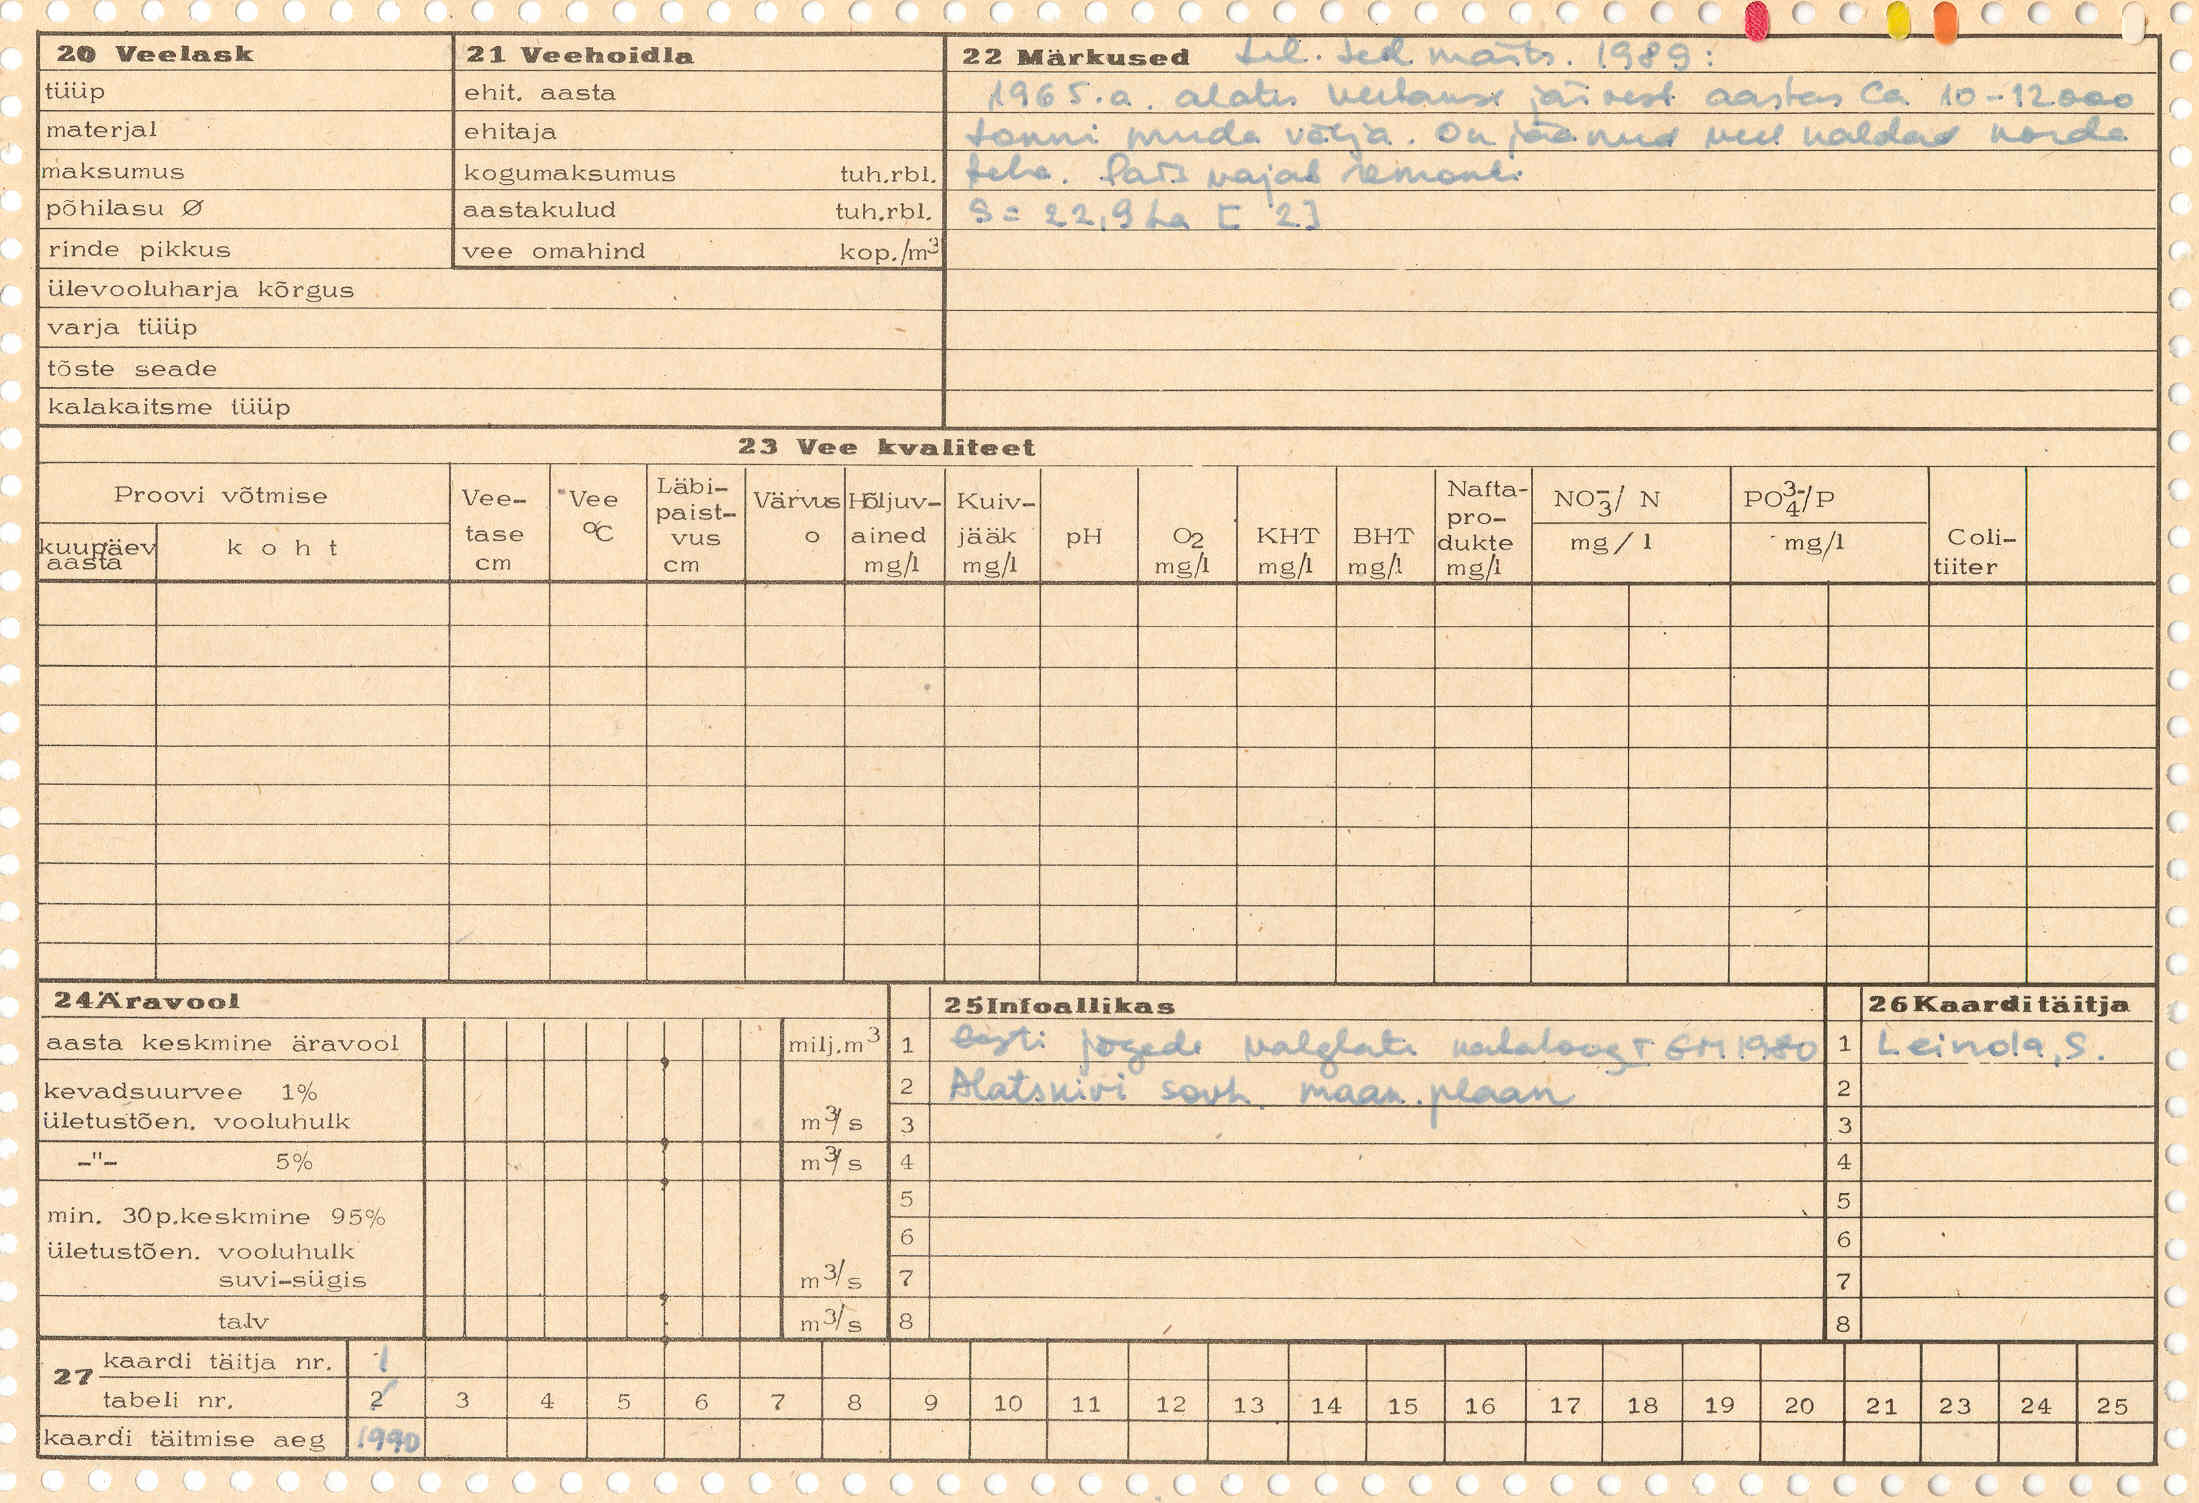 20 Veelask
tüüp
materjal
maksumus
põhilasu Ø
rinde pikkus
ülevooluharja kõrgus
varja tüüp
tõste seade
kalakaitsme tüüp
21 Veehoidla
ehit. aasta
ehitaja
kogumaksumus tuh.rbl.
aastakulud tuh.rbl.
vee omahind kop./m³
22 Märkused 1989:
1965.a. alates järvest aastas ca 10-12000
tonni muda välja. On jäänud veel kaldad korda
teha. Pais vajab remonti
S = 22,9 ha [2]
23 Vee kvaliteet
Proovi võtmise
kuupäev aasta
koht
Vee-tase cm
Vee °C
Läbi-paist-vus cm
Värvus o
Hõljuv-ained mg/l
Kuiv-jääk mg/l
pH
O₂ mg/l
KHT mg/l
BHT mg/l
Nafta-pro-dukte mg/l
NO₃⁻/ N
mg/l
PO₄³⁻/P
mg/l
Coli-tiiter
24 Äravool
aasta keskmine äravool milj.m³
kevadsuurvee 1%
ületustõen. vooluhulk m³/s
-"- 5% m³/s
min. 30p.keskmine 95%
ületustõen. vooluhulk
suvi-sügis m³/s
talv m³/s
25 Infoallikas
1 Eesti jõgede valglate kataloog I 1980
2 Alatskivi sovh. maak. plaan
3
4
5
6
7
8
26 Kaardi täitja
1 Leinola, S.
2
3
4
5
6
7
8
27
kaardi täitja nr. 1
tabeli nr. 2 3 4 5 6 7 8 9 10 11 12 13 14 15 16 17 18 19 20 21 23 24 25
kaardi täitmise aeg 1990